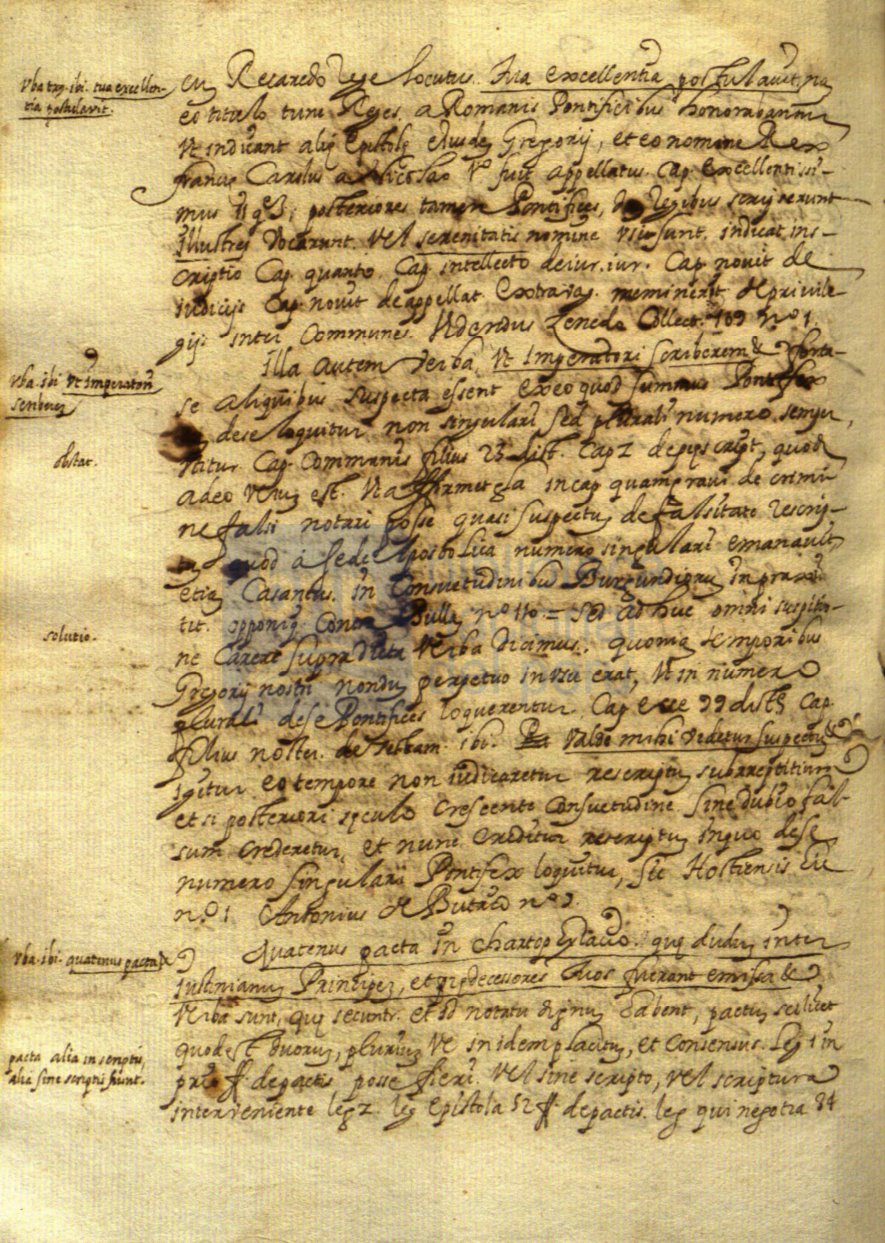 vba trp. ibi. tua excellen-
tia postulavit.
cu Recaredo Rege locutus. Tua excellentia postulavit. na
eo titulo tunc Reges. a Romanis Pontificibus honorabantur
Vt indicant aliq Epistolę eiusdeq Gregorij, et eo nomine Rex
francus Carolus a fuit appellatus. Cap. Excellentissi-
mus 11 q 3; posteriores tamen Pontifices, de Regibus scripserunt
Illustres vocarunt. vel serenitatis nomine vsi sunt. indicat ins-
criptio Cap. quanto. Cap. intellecto de iur. iur. Cap. novit de
iudicijs Cap. novit de appellat. Extravag. meminerit de privile-
gijs inter Communes. Videndus Zenedo Collect. 109 nº 1.
vba. ibi vt imperatori
scriberem
Illa autem verba, Vt Imperatori scriberem & forta-
se aliquibus suspecta essent ex eo quod summus Pontifex
de se loquitur non singulari sed plurali numero. semper
obstat.
titur Cap. Communis filius 23 dist. Cap 2 de quod
adeo verum est. Vt affirmet in cap quam pravi de crimi
ne falsi notari posse quasi suspectu de falsitate rescrip-
tu quod a sede Apostolica numero singulari emanavit
etia Casaneus. in Consuetudinibus Burgundioru in
tit. Contra Bulla nº 110 = sed ad huc omni suspitio-
solutio.
ne carere supradicta verba dicimus, quonia temporibus
Gregorij nostri nondu perpetuo in vsu erat, Vt in numero
plurali de se Pontifices loquerentur Cap. Ecce 99 dist. Cap.
filius noster. de testam. ibi. Valde mihi videtur suspectu &
Igitur eo tempore non iudicaretur rescriptu subreptitium
et si posteriori sęculo crescente consuetudine sine dubio fal-
sum crederetur, et nunc creditur rescriptu in quo de se
numero singularii Pontifex loquitur, sic Hostiensis
nº 1 Antonius de Butrio nº
vba. ibi. quatenus pacta &
Quatenus pacta in chartophylacio. quę dudu inter
Justinianu Principeq, et prędecessores tuos fuerant emissa &
Verba sunt, quę secuntr. et id notatu dignu habent, pactu scilicet
quod est duoru, pluriuq ve in idem placitu, et consensus. leg 1 in
pacta alia in scriptis,
alia sine scriptis fiunt.
prin ff de pactis posse fieri vel sine scripto, vel scriptura
interveniente leg 2. leg Epistola 52 ff. de pactis. leg qui negotia 34